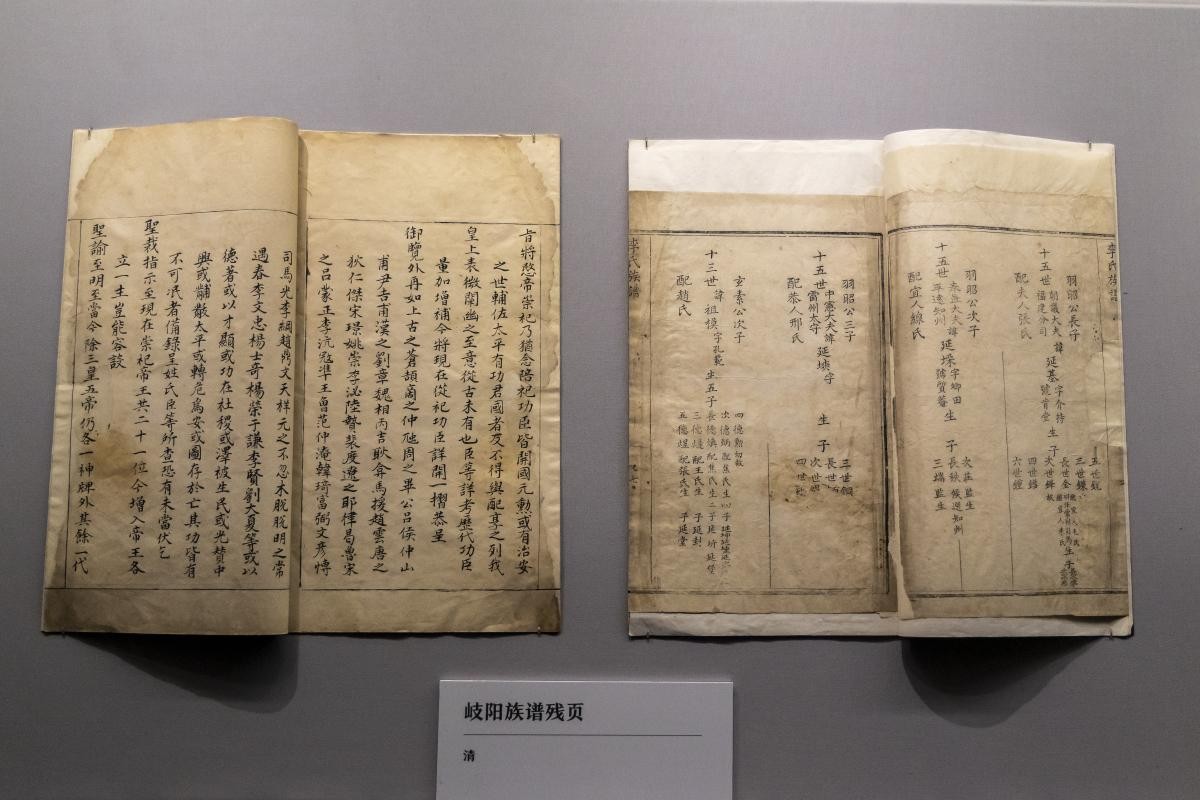 肯將愍帝崇祀乃猶念陪祀功臣皆開國元勲或有治安
之世輔佐太平有功君國者及不得與配享之列我
皇上表微闡幽之至意從古未有也臣等詳考歷代功臣
量加增補今將現在從祀功臣詳開一摺恭呈
御覽外再如上古之蒼頡商之仲虺周之畢公呂侯仲山
甫尹吉甫漢之劉章魏相丙吉耿弇馬援趙雲唐之
狄仁傑宋璟姚崇李泌陸贄裴度遼之耶律曷魯宋
之呂蒙正李沆寇準王曾范仲淹韓琦富弼文彥愽
司馬光李綱趙鼎文天祥元之不忽木脫脫明之常
遇春李文忠楊士奇楊榮于謙李賢劉大夏等或以
德著或以才顯或功在社稷或澤被生民或光贊中
興或黼黻太平或轉危為安或圖存於亡其功皆有
不可泯者備錄呈姓氏臣等所查恐有未當伏乞
聖裁指示至現在崇祀帝王共二十一位今增入帝王各
立一主豈能容設
聖諭至明至當今除三皇五帝仍各一神牌外其餘一代
李氏族譜
羽昭公長子
十五世 朝議大夫諱 延基字介持
福建分司 號肯堂 生 子
配夫人張氏
五世銳
三世鑅
長世金
次世鋒
四世鏴
六世鍾
羽昭公次子
十五世 奉直大夫諱 延埰字卿田
平遠知州 號質菴 生 子
配宜人線氏
次莊監生
長秋候選知州
三瑞監生
羽昭公三子
十五世 中憲大夫諱 延墺字
雷州太守 生 子
配恭人邢氏
三世
長世
次世
四世
玄素公次子
十三世 諱 祖模字孔範 生五子
配趙氏
四德勳幼歿
次德炳配焦氏生四子
長德煥配焦氏生二子延埼延璧
三德煃配王氏生 子延封
五德煜配張氏生 子延堂
李氏族譜
岐阳族谱残页
清